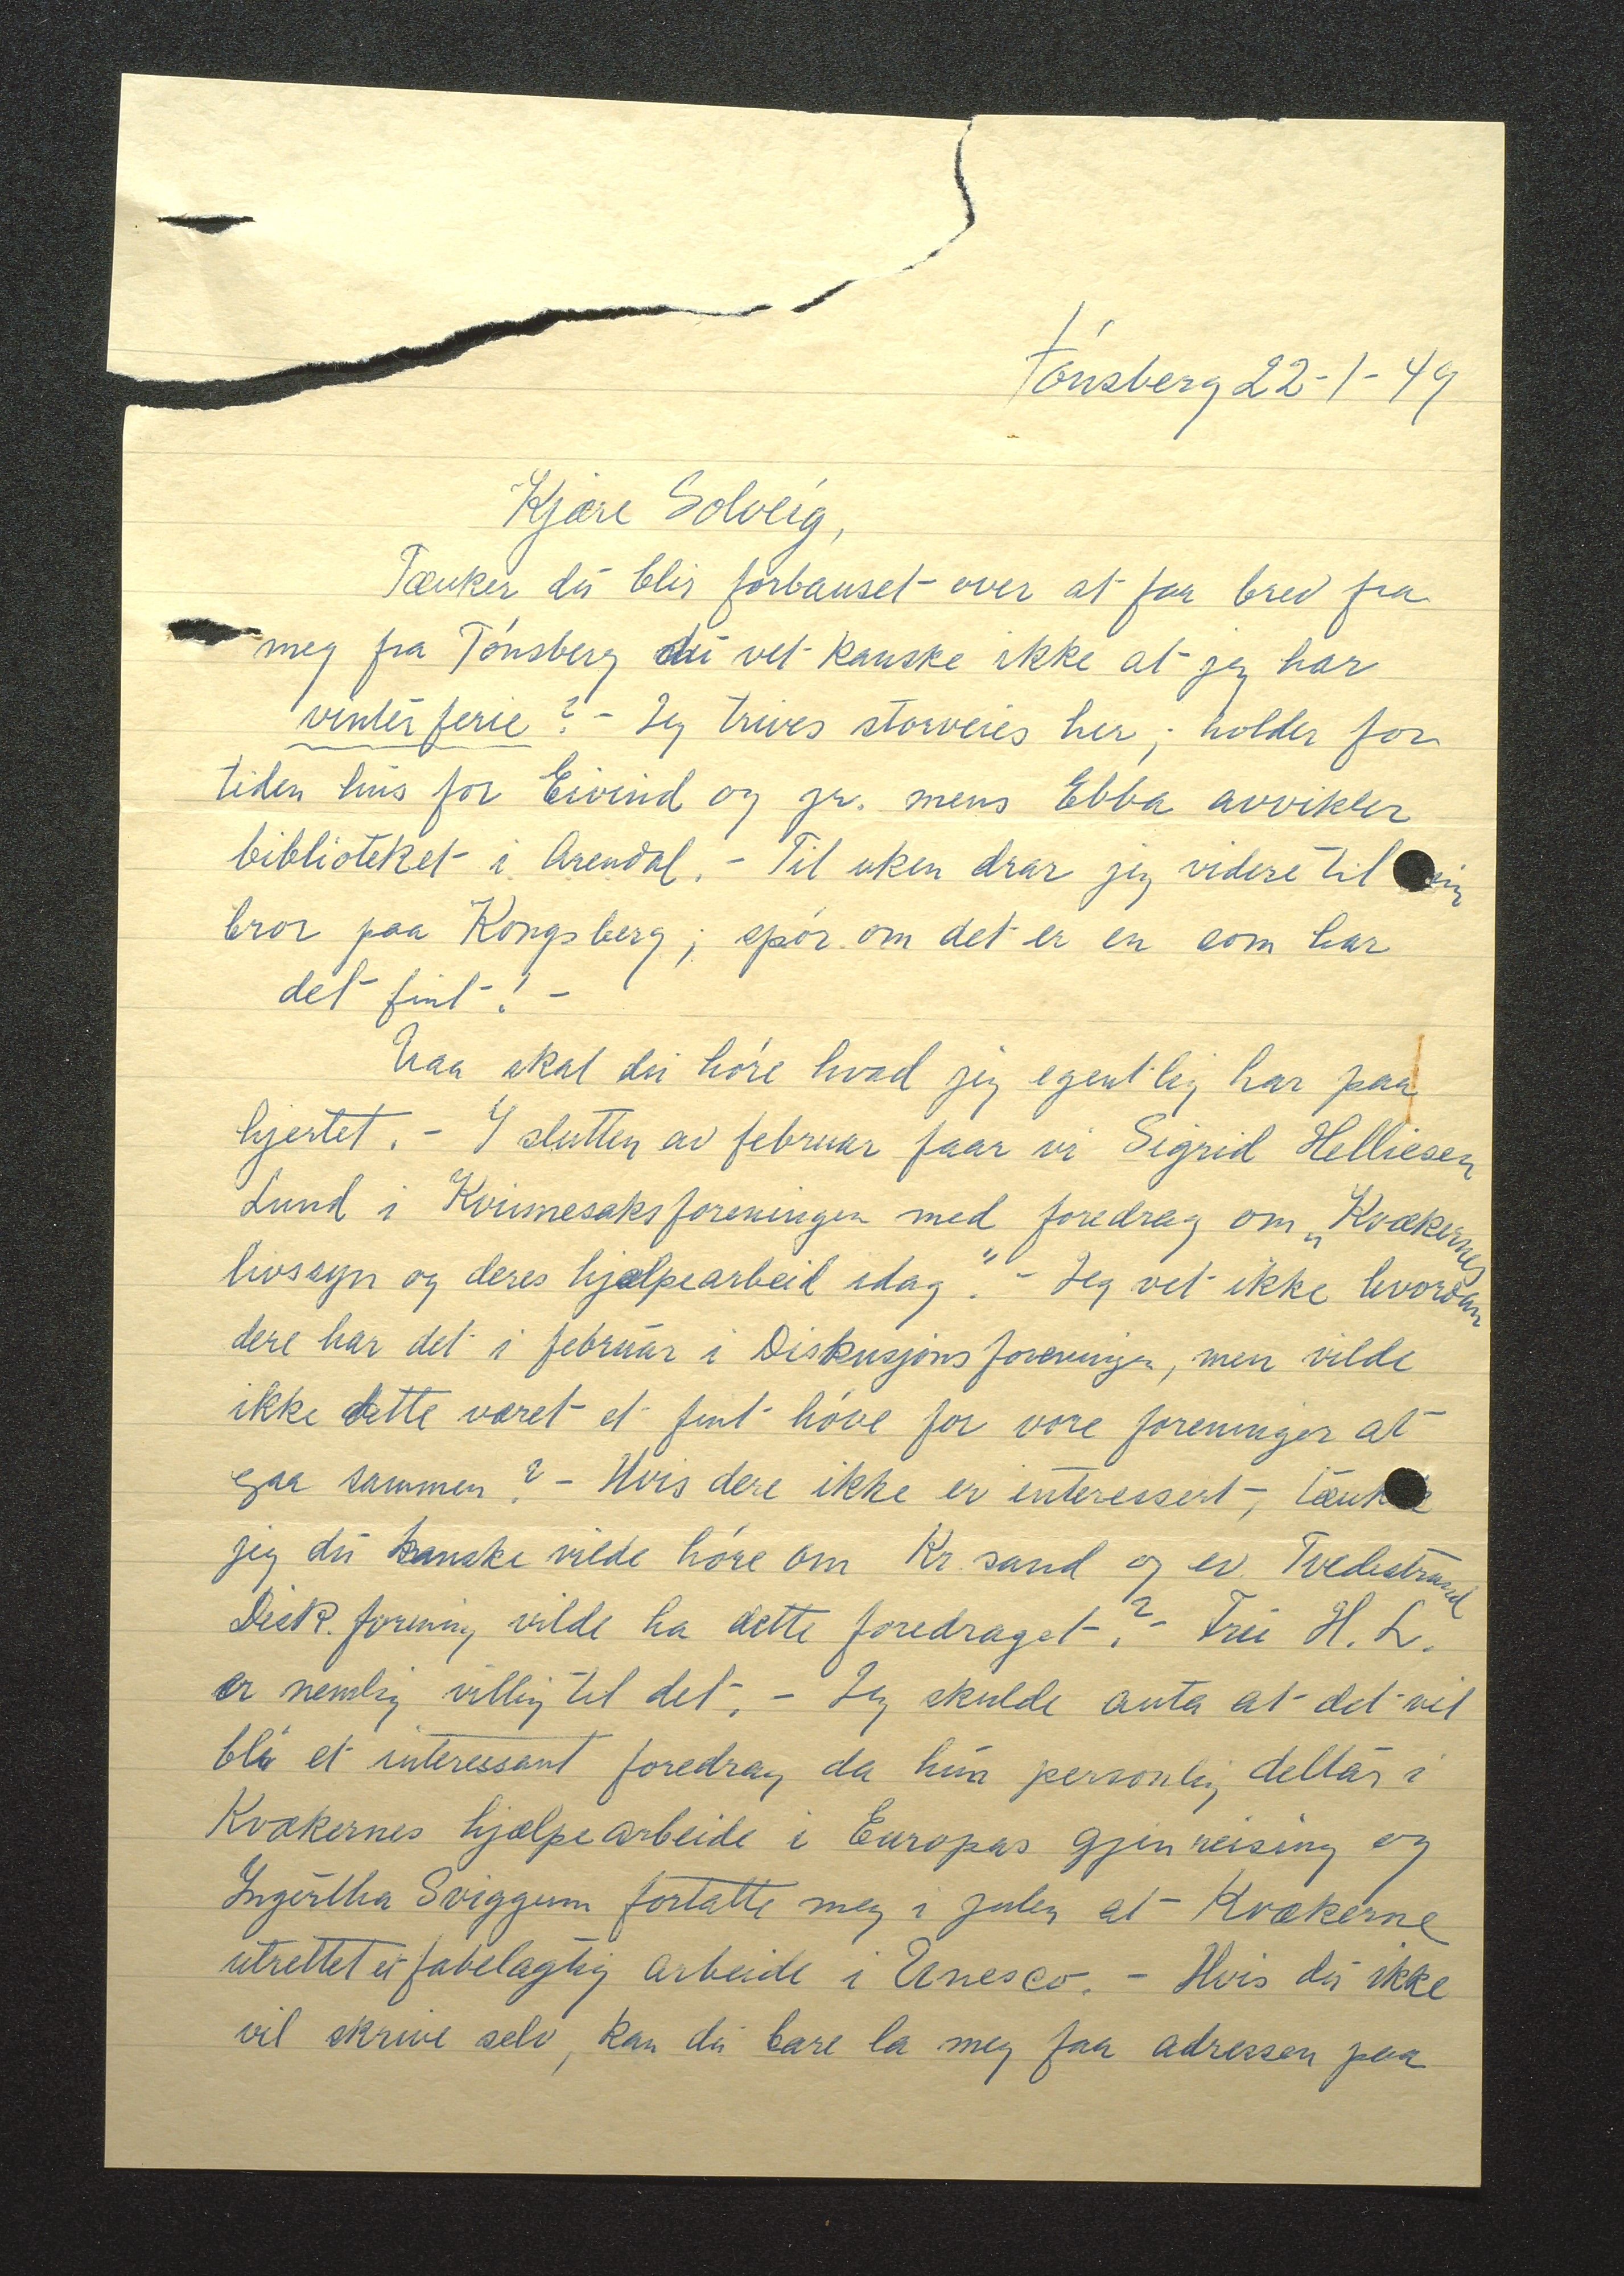 Tónsberg 22-1-49
Kjære Solveig,
Tænker du blir forbauset over at faa brev fra
meg fra Tónsberg du vet kanske ikke at jeg har
vinterferie? - Jeg trives storveies her; holder for
tiden hus for Eivind og jr. mens Ebba avvikler
biblioteket i Arendal. - Til uken drar jeg videre til
bror paa Kongsberg; spór om det er en som har
det fint! -
Naa skal du hóre hvad jeg egentlig har paa
hjertet. - I slutten av februar faar vi Sigrid Helliesen
Lund i Kvinnesaksforeningen med foredrag om „Kvækernes
livssyn og deres hjælpearbeid idag". - Jeg vet ikke hvordan
dere har det i februar i Diskusjonsforeningen, men vilde
ikke dette været et fint hóve for vore foreninger at
gaa sammen? - Hvis dere ikke er interessert, tænkte
jeg du kanske vilde hóre om Kr.sand og ev. Tvedestrand
Disk. forening vilde ha dette foredraget.? - Fru H. L.
er nemlig villig til det. - Jeg skulde anta at det vil
bli et interessant foredrag da hun personlig deltar i
Kvækernes hjælpearbeide i Europas gjenreising og
Ingertha Sviggum fortalte meg i julen at Kvækerne
utrettet et fabelagtig arbeide i Unesco. - Hvis du ikke
vil skrive selv, kan du bare la meg faa adressen paa